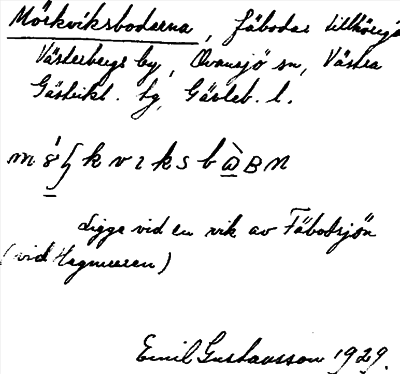 Mörkviksbodarna, fäbodar tillhörig
Västerbergs by, Ovansjö sn, Västra
Gästrikl. tg, Gävleb. l.
ligge vid en vik av Fäbodsjön
(vid Hagmuren)
Emil Gustavsson 1929.